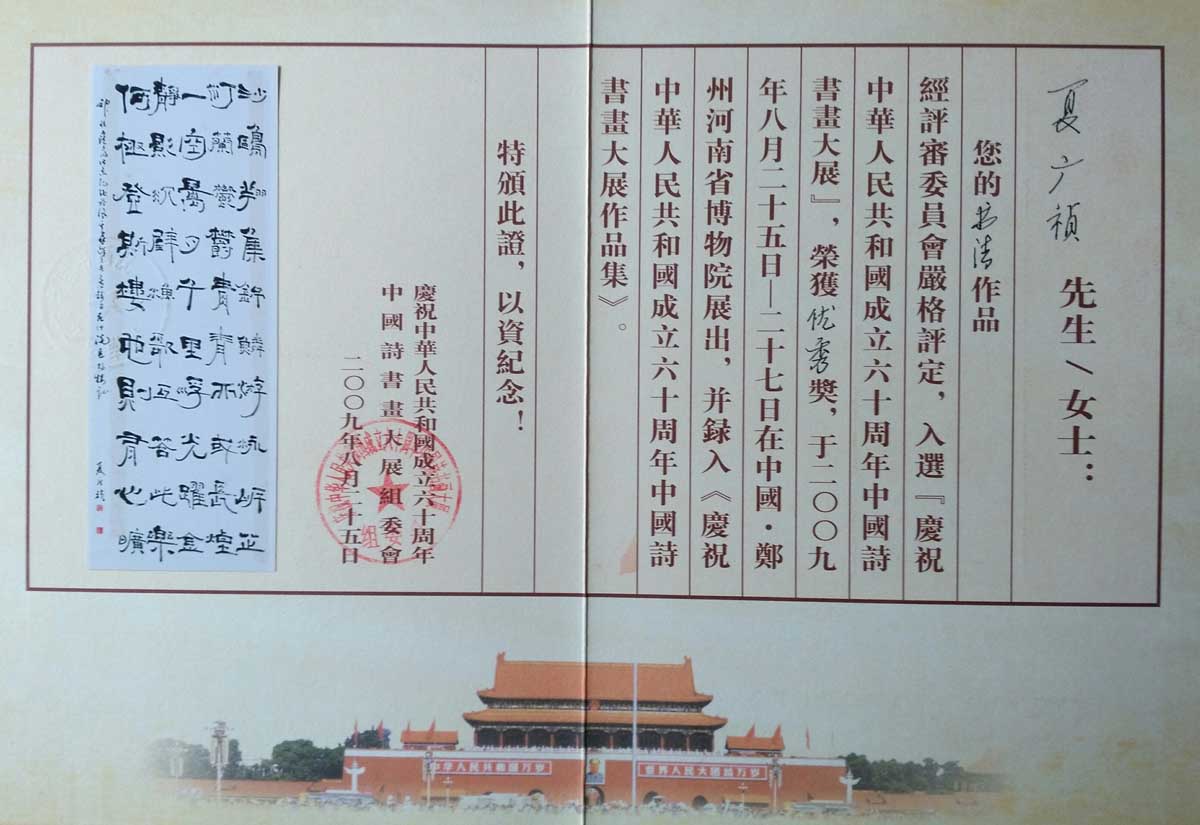 夏广祯 先生/女士：
您的书法作品
經評審委員會嚴格評定，入選『慶祝
中華人民共和國成立六十周年中國詩
書畫大展』，榮獲优秀獎，于二〇〇九
年八月二十五日—二十七日在中國·鄭
州河南省博物院展出，并録入《慶祝
中華人民共和國成立六十周年中國詩
書畫大展作品集》。
特頒此證，以資紀念！
慶祝中華人民共和國成立六十周年
中國詩書畫大展組委會
二〇〇九年八月二十五日
沙鷗翔集錦鱗游泳岸芷
汀蘭鬱鬱青青而或長煙
一空皓月千里浮光躍金
靜影沉璧漁歌互答此樂
何極登斯樓也則有心曠
中华人民共和国万岁
世界人民大团结万岁